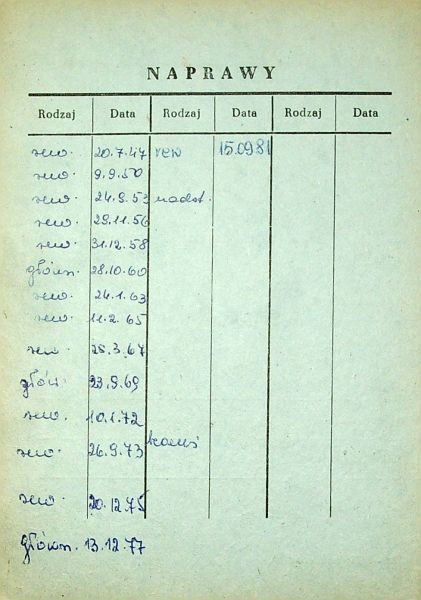 NAPRAWY
Rodzaj Data Rodzaj Data Rodzaj Data
rew. 20.7.47 rew 15.09.81
9.9.50
rew. 24.9.53 nadst.
rew. 29.11.56
rew. 31.12.58
główn. 28.10.60
rew. 24.1.63
rew. 11.2.65
rew. 28.3.67
głów. 23.9.69
rew. 10.1.72
rew. 26.9.73
rew. 20.12.75
główn. 13.12.77